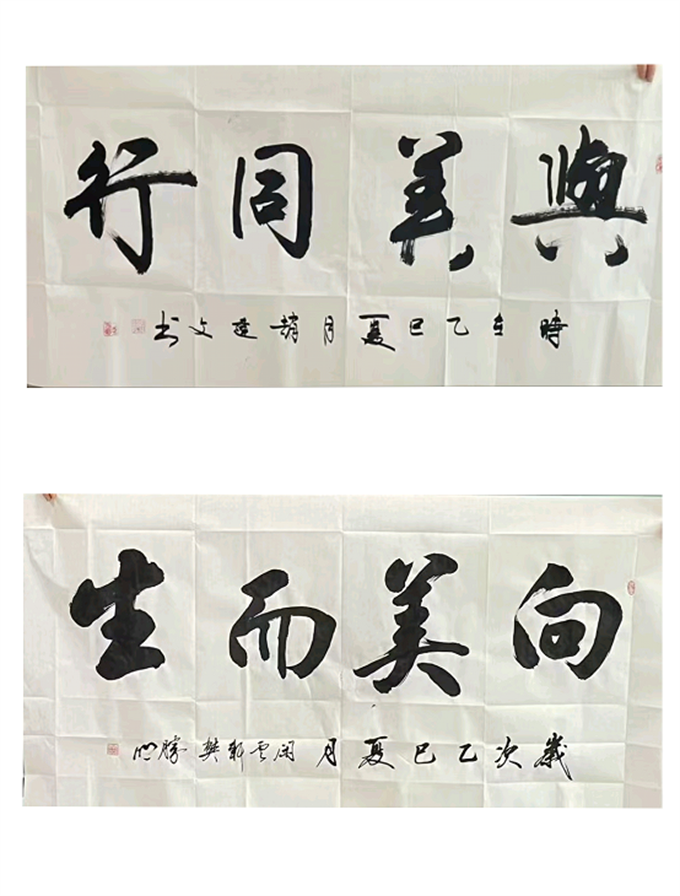 與美同行
時在乙巳夏月趙建文书
向美而生
歲次乙巳夏月閑雲軒樊勝